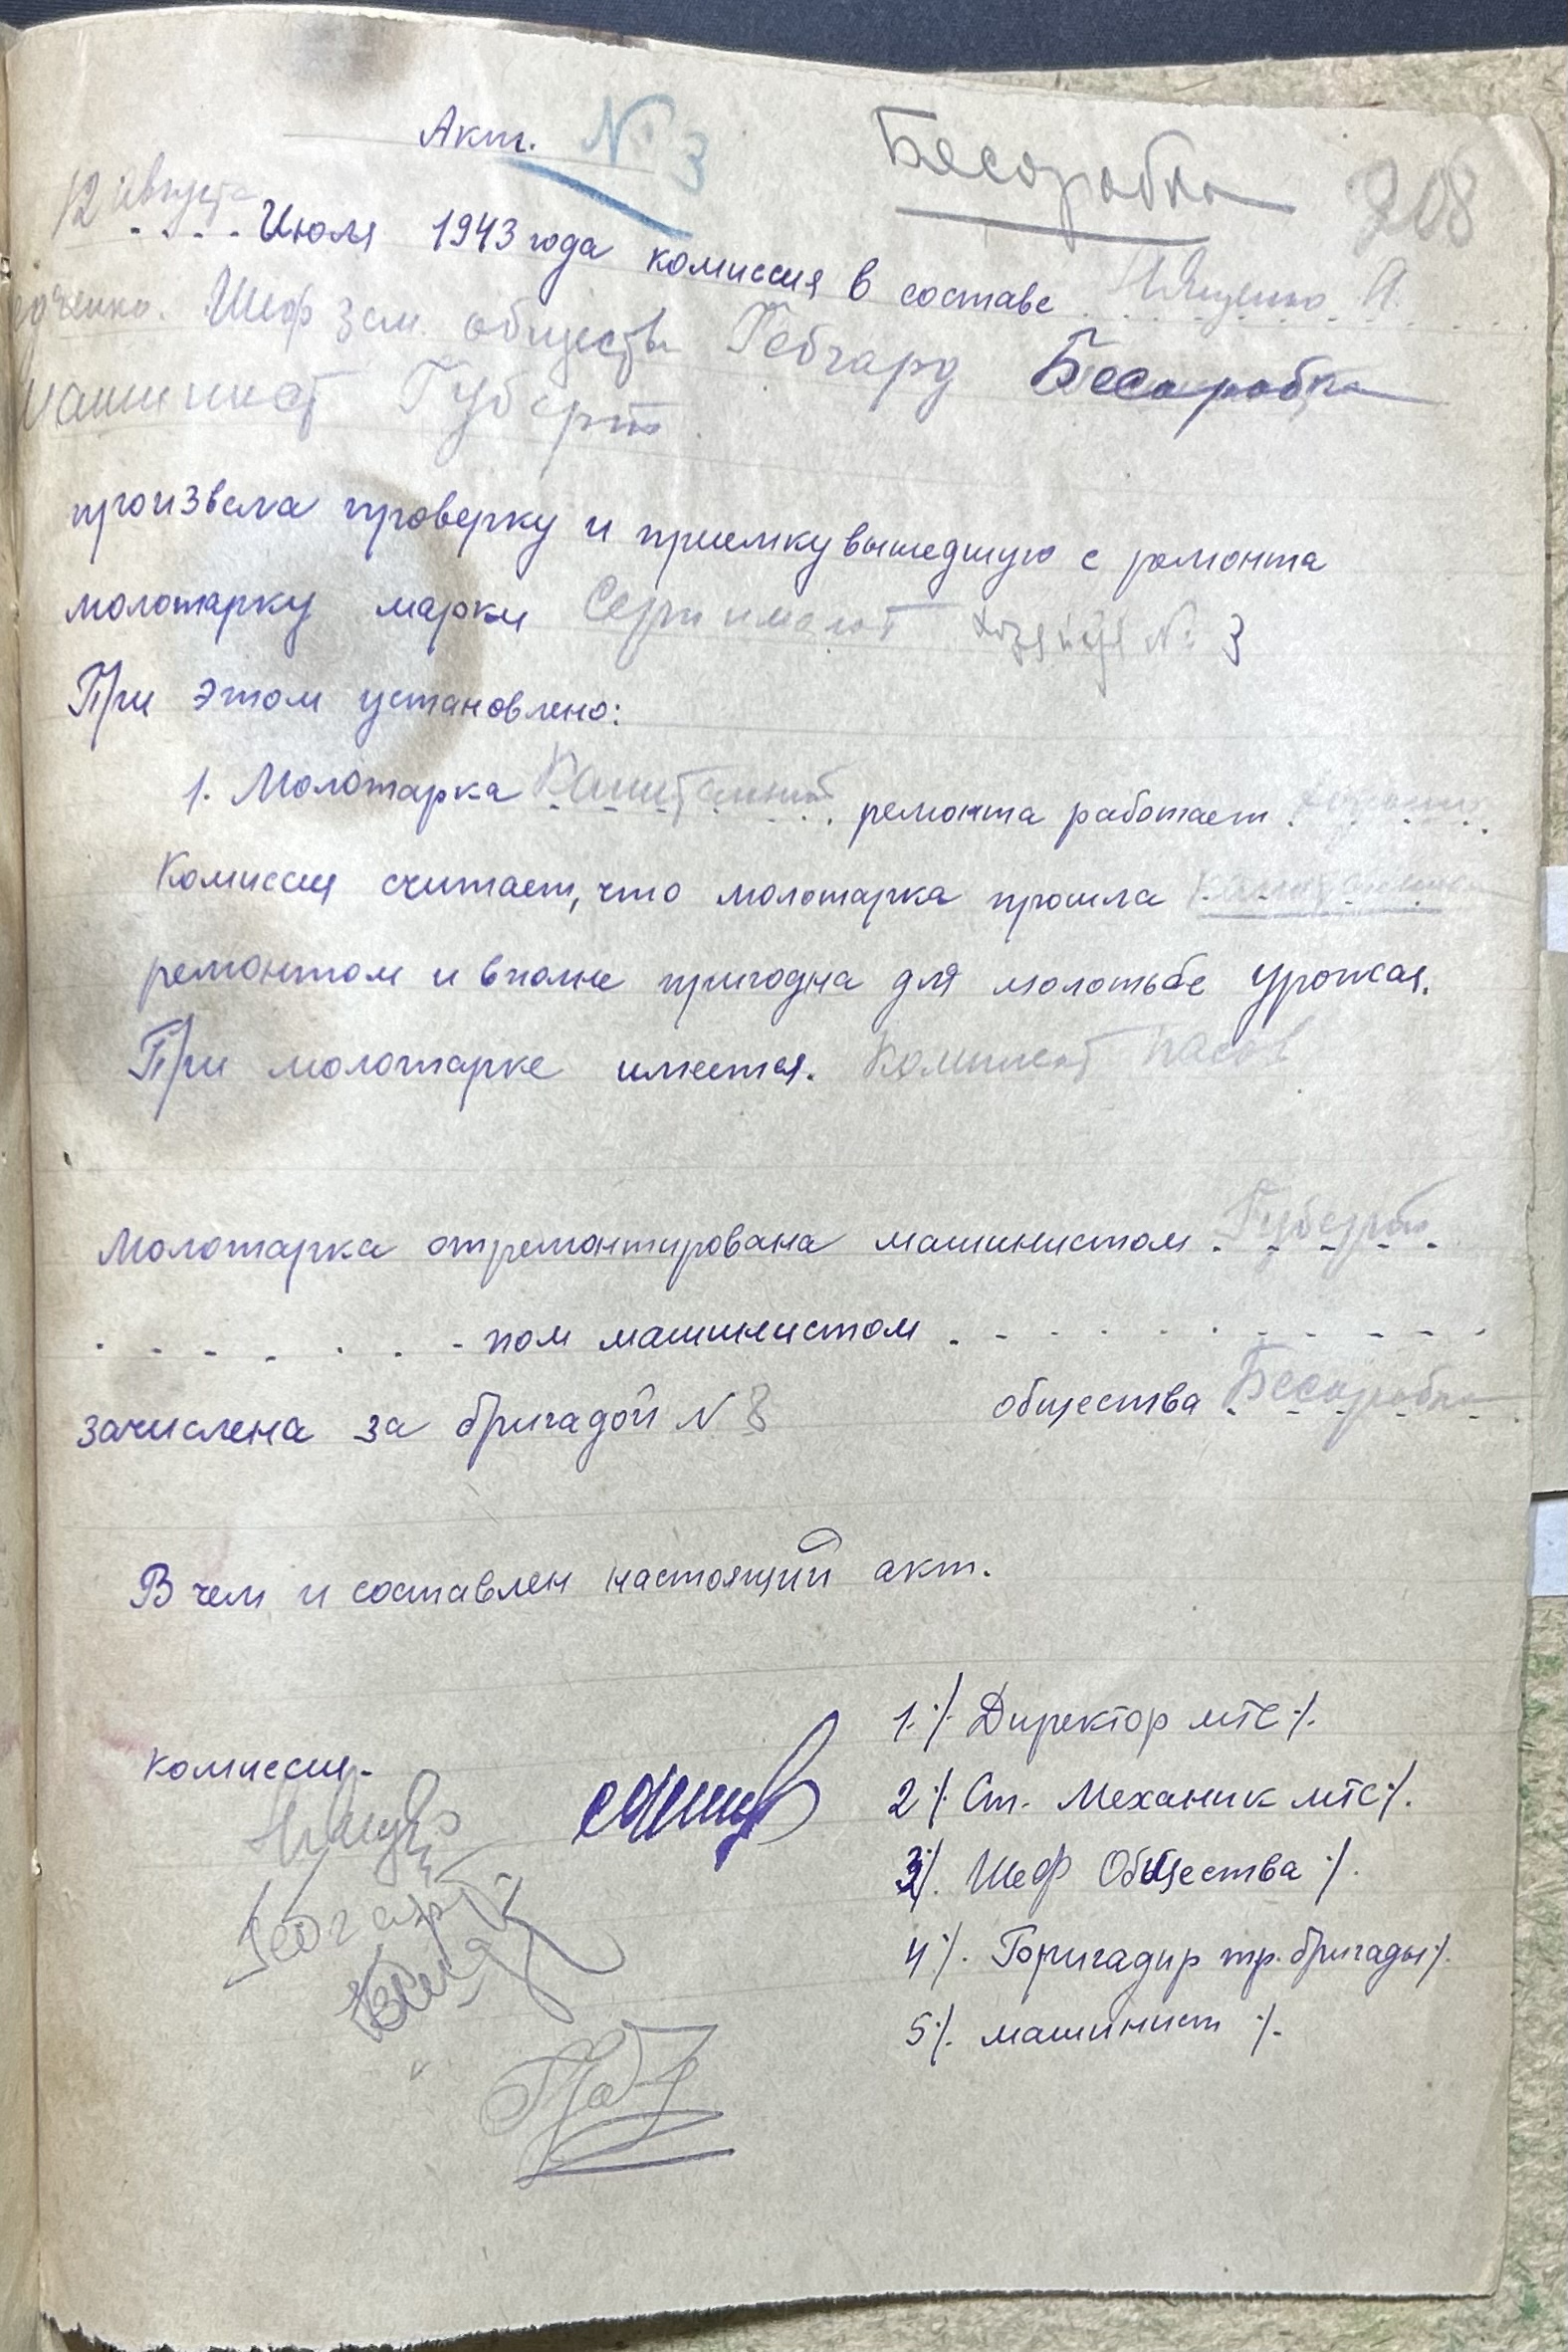 Акт. № 3 Бесоробка 208
12 августа
. . . . Июля 1943 года комиссия в составе Ищенко А.
Шеф Зем. обществ Гебгард Бесоробка
машинист Губерт.
произвела проверку и приемку вышедшую с ремонта
молотарку марки Серп имолот № 3
При этом установлено:
1. Молотарка Капитанный ремонта работает хорошо
Комиссия считает, что молотарка прошла
ремонтом и вполне пригодна для молотьбе урожая.
При молотарке имеется. Комплект пасов
Молотарка отремонтирована машинистом Губерт
. . . . . . . пом машинистом . . . . . . . . . .
зачислена за бригадой N 8 общества Бесоробка
В чем и составлен настоящий акт.
1.⁒ Директор мтс ⁒.
комиссия.
2⁒ Ст. Механик мтс ⁒.
3⁒. Шеф Общества ⁒.
Гебгард
4⁒. Бригадир тр. бригады ⁒.
5⁒. машинист ⁒.